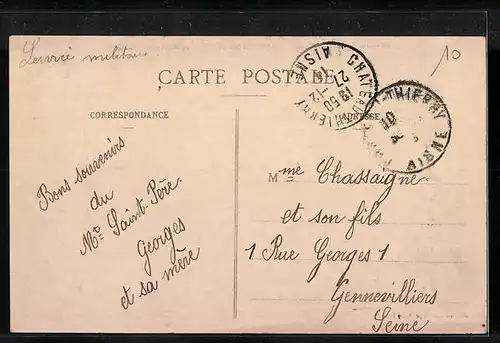 Service militaire
10
CARTE POSTALE
CHATEAU-THIERRY
AISNE
13 50
27-12
-THIERRY
AISNE
CORRESPONDANCE
ADRESSE
Bons souvenirs
du
Mo Saint-Père.
Georges
et sa mère
Mme Chassaigne
et son fils
1 Rue Georges 1
Gennevilliers
Seine